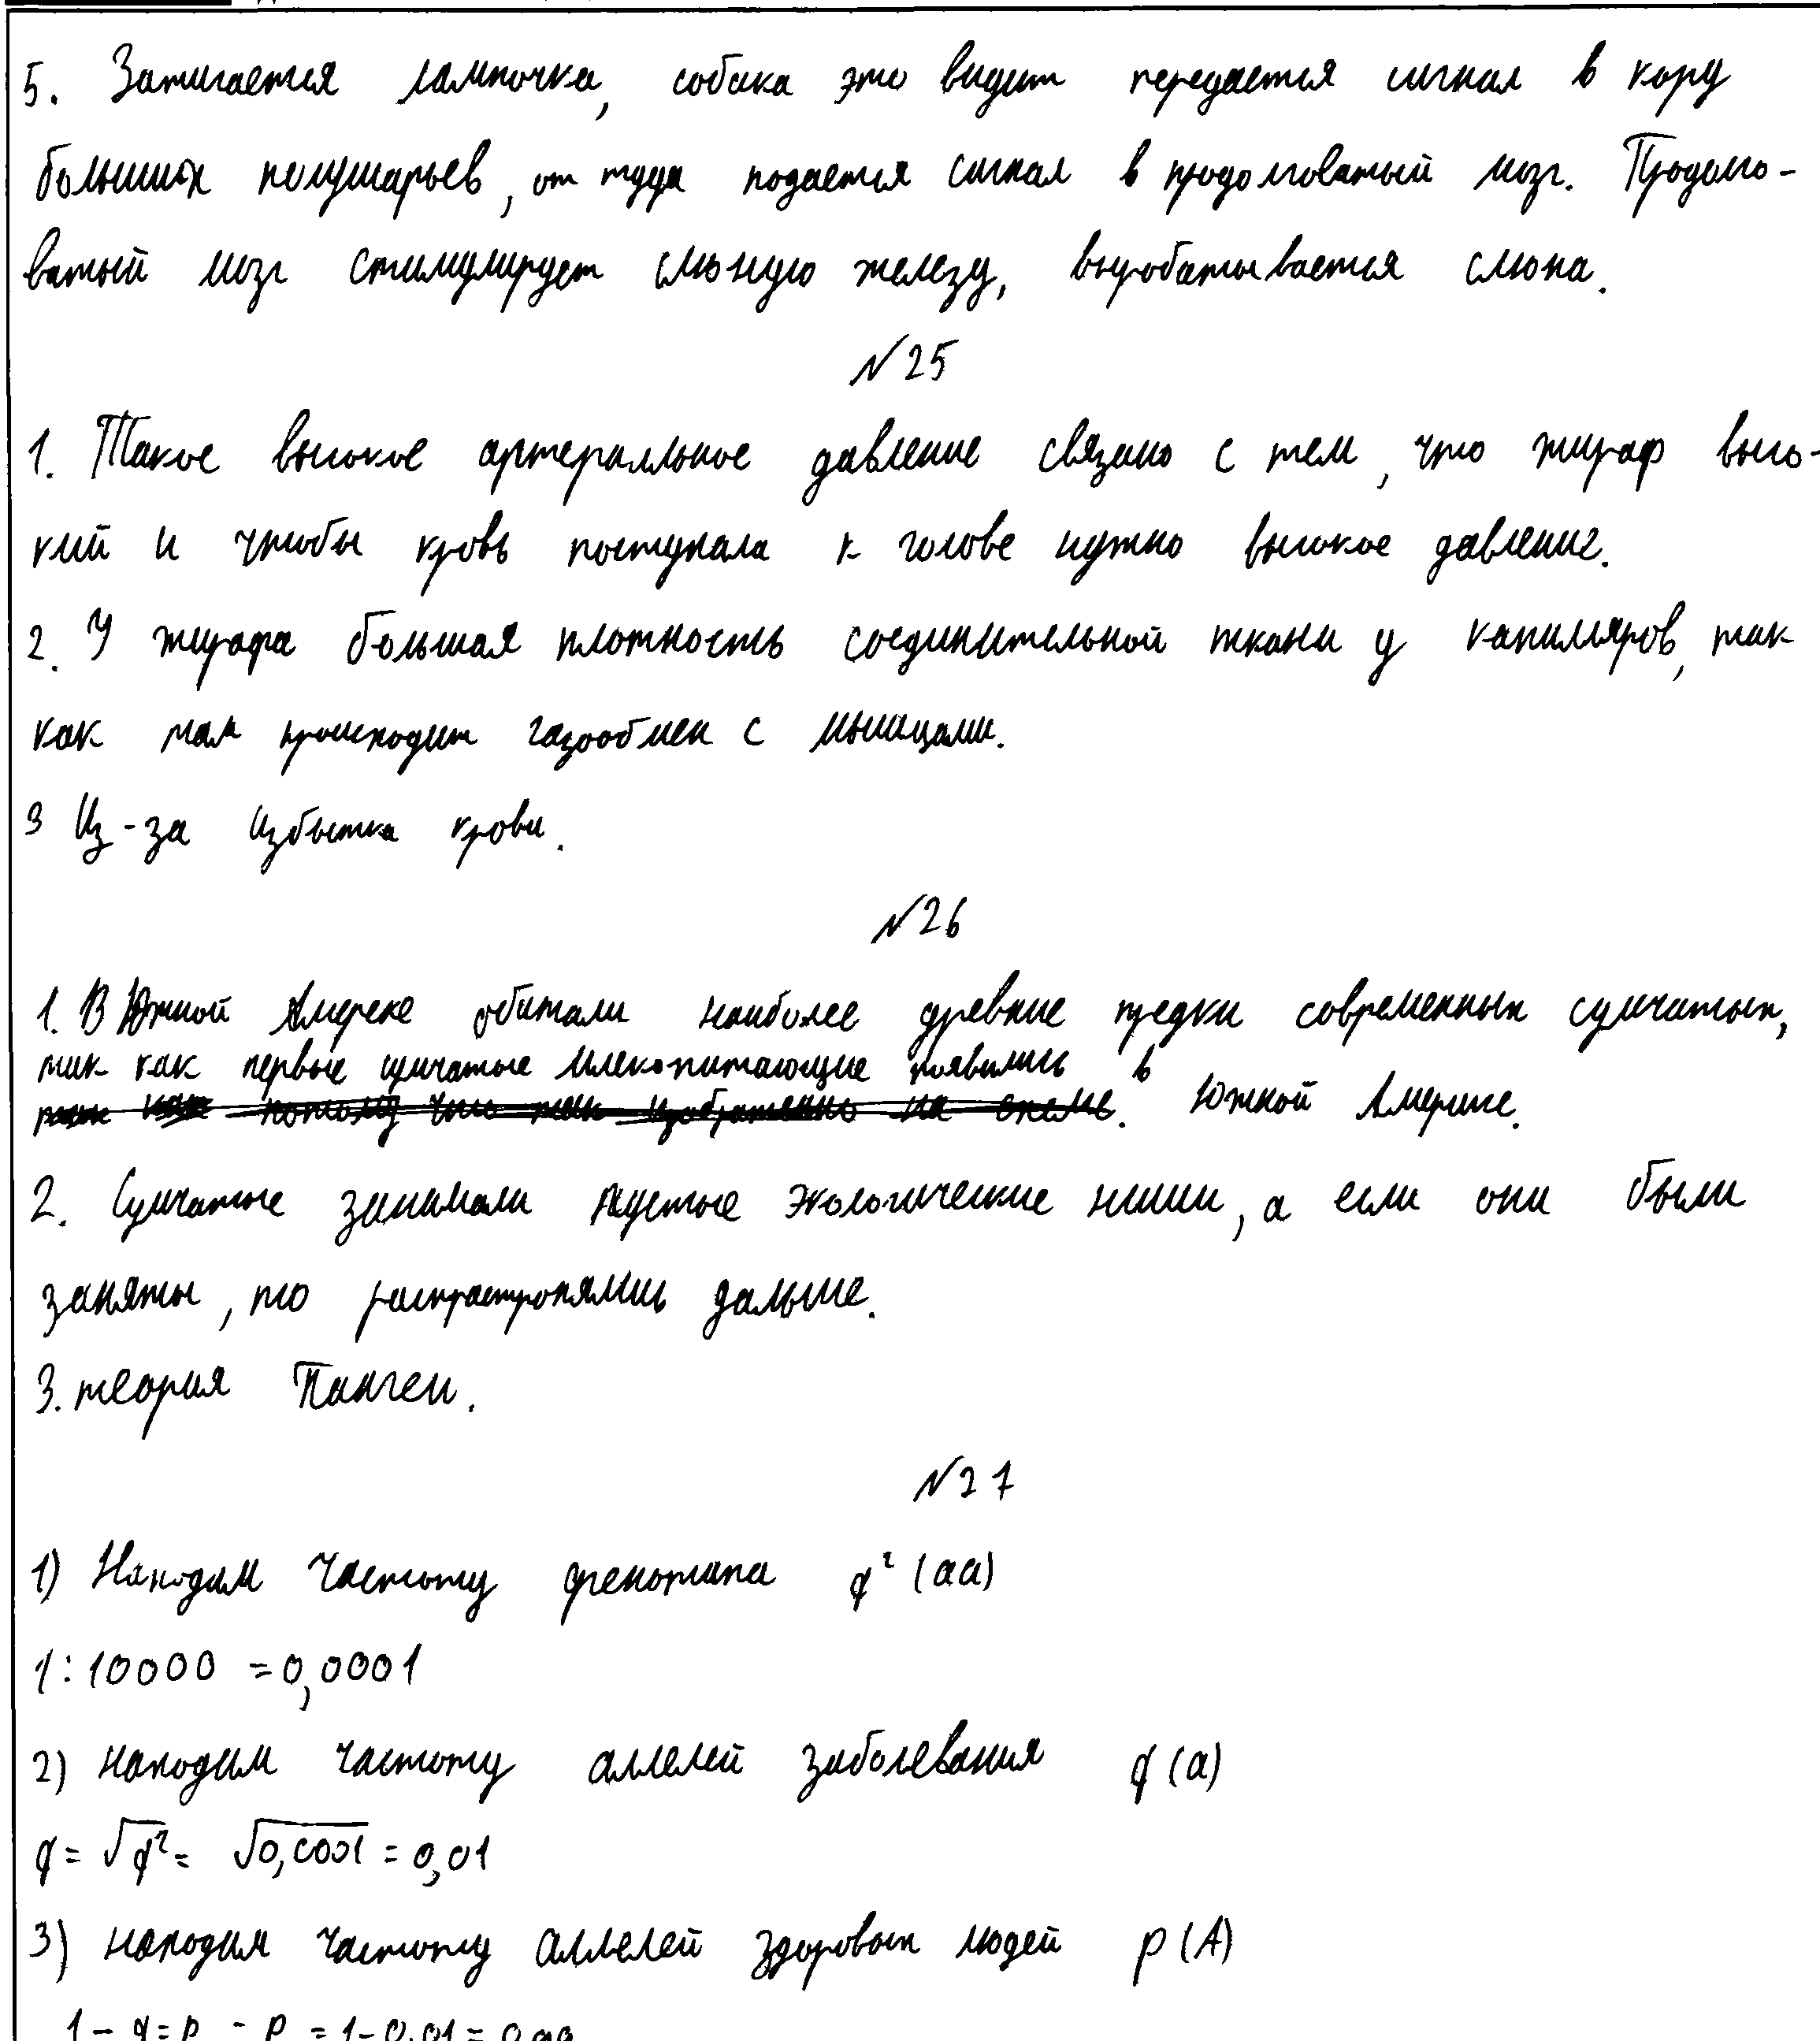 5. Зажигается лампочка, собака это видит передается сигнал в кору
больших полушарьев, от туда подается сигнал в продолговатый мозг. Продолго-
ватый мозг стимулирует слюную железу, выробатывается слюна.
№25
1. Такое высокое артериальное давление связано с тем, что жираф высо-
кий и чтобы кровь поступала к голове нужно высокое давление.
2. У жирафа большая плотность соединительной ткани у капилляров, так
как там происходит газообмен с мышцами.
3 Из-за избытка крови.
№26
1. В Южной Америке обитали наиболее древние предки современных сумчатых,
так как первые сумчатые млекопитающие появились в
так как потому что так изображенно на схеме. Южной Америке.
2. Сумчатые занимали пустые экологические ниши, а если они были
заняты, то распространялись дальше.
3. теория Пангеи.
№27
1) Находим частоту фенотипа q² (aa)
1:10000 = 0,0001
2) находим частоту аллелей заболевания q (a)
q = √q² = √0,0001 = 0,01
3) находим частоту аллелей здоровых людей p (A)
1 - q = p - p = 1 - 0,01 = 0,99